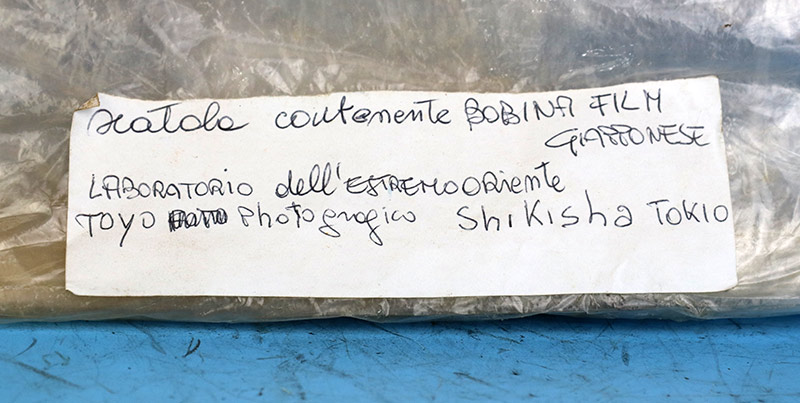 scatola contenente BOBINA FILM
GIAPPONESE
LABORATORIO dell'ESTREMO ORiente
TOYO Photografico Shikisha TOKIO